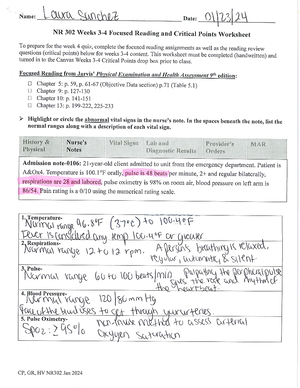 Name: Laura Sanchez Date: 01/23/24
NR 302 Weeks 3-4 Focused Reading and Critical Points Worksheet
To prepare for the week 4 quiz, complete the focused reading assignments as well as the reading review
questions (critical points) below for weeks 3-4 content. This worksheet must be completed (handwritten) and
turned in to the Canvas Weeks 3-4 Critical Points drop box prior to class.
Focused Reading from Jarvis' Physical Examination and Health Assessment 9th edition:
Chapter 5: p. 59, p. 61-67 (Objective Data section) p.71 (Table 5.1)
Chapter 9: p. 127-130
Chapter 10: p. 141-151
Chapter 13: p. 199-222, 225-233
Highlight or circle the abnormal vital signs in the nurse's note. In the spaces beneath the note, list the
normal ranges along with a description of each vital sign.
History & Physical Nurse's Notes Vital Signs Lab and Diagnostic Results Provider's Orders MAR
Admission note-0106: 21-year-old client admitted to unit from the emergency department. Patient is
A&Ox4. Temperature is 100.1°F orally, pulse is 48 beats/per minute, 2+ and regular bilaterally,
respirations are 28 and labored, pulse oximetry is 98% on room air, blood pressure on left arm is
86/54. Pain rating is a 0/10 using the numerical rating scale.
1. Temperature-
Normal range 96.8°F (37°C) to 100.4°F
Fever is considered any temp 100.4°F or greater
2. Respirations-
Normal range 12 to 12 rpm. A persons breathing is relaxed,
regular, automatic, & silent
3. Pulse-
Normal range 60 to 100 beats/min Palpating the peripheral pulse
gives the rate and rhythm of
the heartbeat.
4. Blood Pressure-
Normal range 120/80 mmHg
of the blood to get through your arteries.
5. Pulse Oximetry-
SpO2: ≥ 95% non-invasive method to assess arterial
Oxygen saturation
CP, GR, HV NR302 Jan 2024